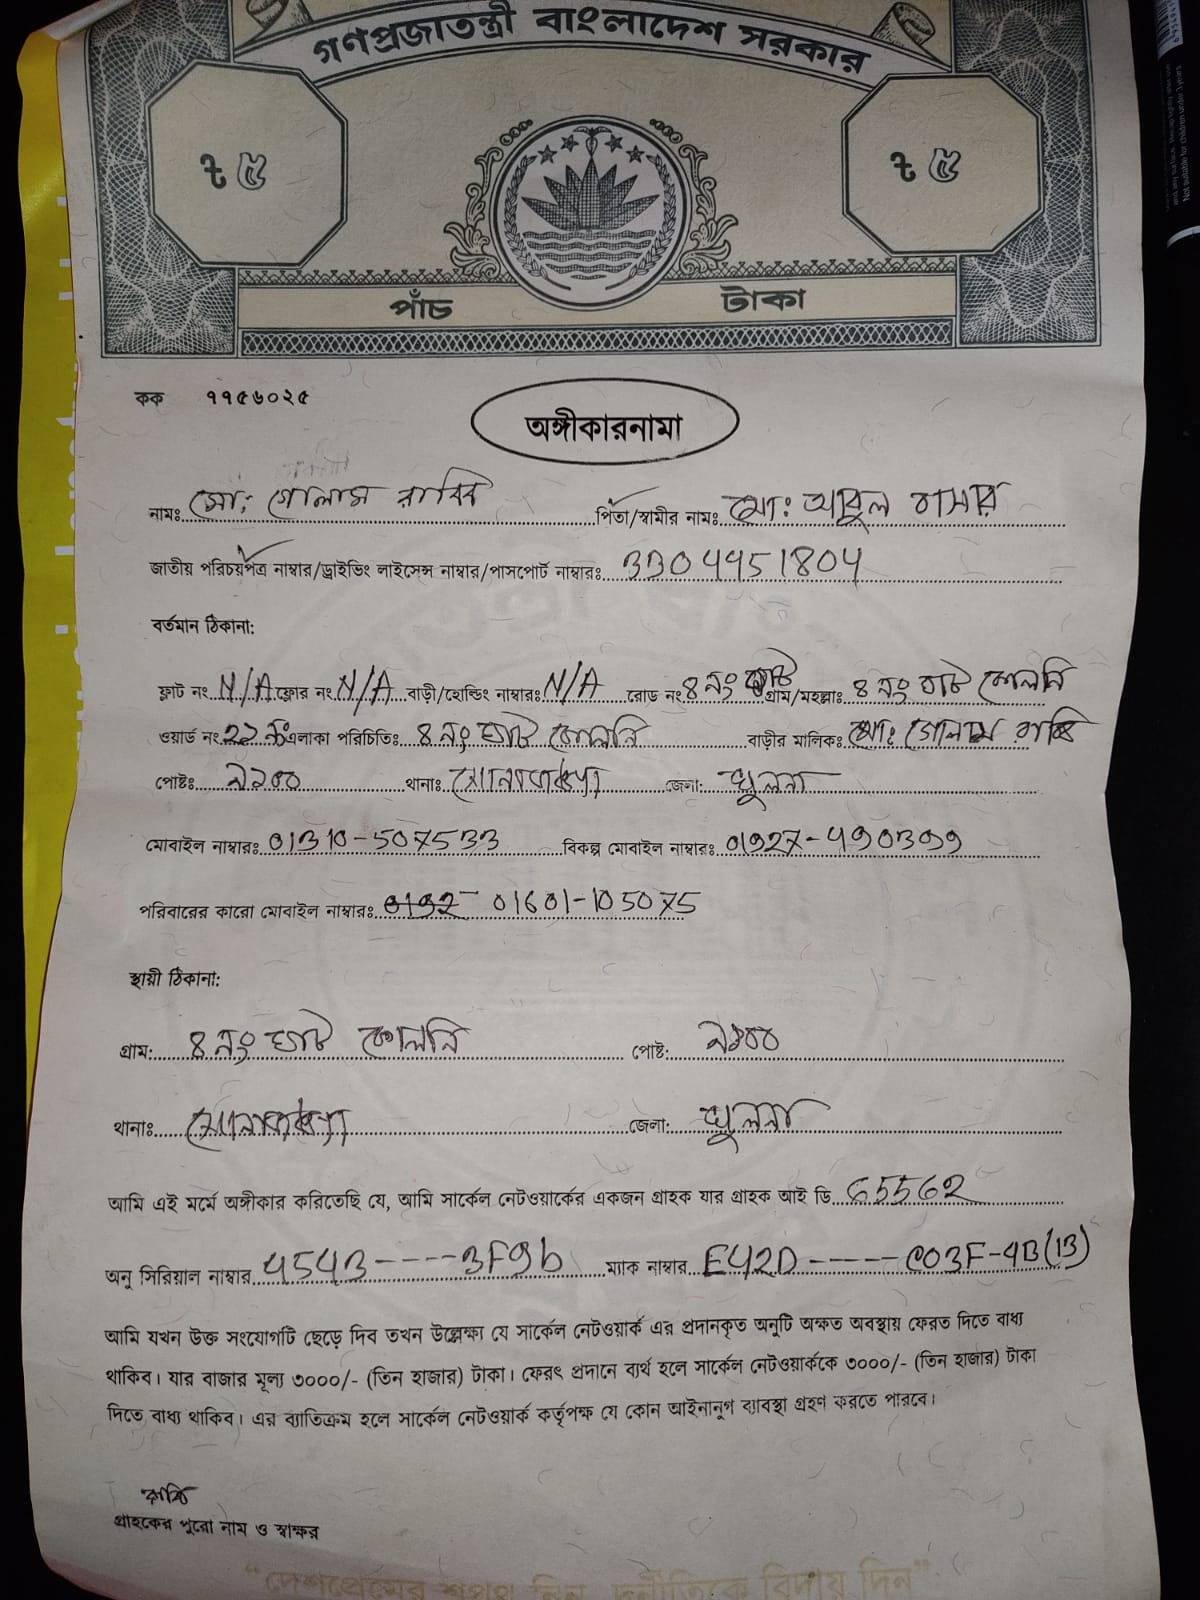 গণপ্রজাতন্ত্রী বাংলাদেশ সরকার
৳ ৫ ৳ ৫
পাঁচ টাকা
কক ৭৭৫৬০২৫
অঙ্গীকারনামা
নামঃ মো: গোলাম রাব্বি পিতা/স্বামীর নামঃ মো: আবুল বাসার
জাতীয় পরিচয়পত্র নাম্বার/ড্রাইভিং লাইসেন্স নাম্বার/পাসপোর্ট নাম্বারঃ 3304451804
বর্তমান ঠিকানা:
ফ্লাট নং N/A ফ্লোর নং N/A বাড়ী/হোল্ডিং নাম্বারঃ N/A রোড নং ৪ নং ঘাট গ্রাম/মহল্লাঃ ৪ নং ঘাট কোলনি
ওয়ার্ড নং ২১ নং এলাকা পরিচিতিঃ ৪ নং ঘাট কোলনি বাড়ীর মালিকঃ মো: গোলাম রাব্বি
পোষ্টঃ ৯১০০ থানাঃ জেলা: খুলনা
মোবাইল নাম্বারঃ 01310-507533 বিকল্প মোবাইল নাম্বারঃ 01927-490399
পরিবারের কারো মোবাইল নাম্বারঃ 01601-105075
স্থায়ী ঠিকানা:
গ্রাম: ৪ নং ঘাট কোলনি পোষ্ট: ৯১০০
থানাঃ জেলা: খুলনা
আমি এই মর্মে অঙ্গীকার করিতেছি যে, আমি সার্কেল নেটওয়ার্কের একজন গ্রাহক যার গ্রাহক আই ডি 65562
অনু সিরিয়াল নাম্বার 4543----3F9b ম্যাক নাম্বার E42D-----C03F-4B(13)
আমি যখন উক্ত সংযোগটি ছেড়ে দিব তখন উল্লেক্ষা যে সার্কেল নেটওয়ার্ক এর প্রদানকৃত অনুটি অক্ষত অবস্থায় ফেরত দিতে বাধ্য
থাকিব। যার বাজার মূল্য ৩০০০/- (তিন হাজার) টাকা। ফেরৎ প্রদানে ব্যর্থ হলে সার্কেল নেটওয়ার্ককে ৩০০০/- (তিন হাজার) টাকা
দিতে বাধ্য থাকিব। এর ব্যাতিক্রম হলে সার্কেল নেটওয়ার্ক কর্তৃপক্ষ যে কোন আইনানুগ ব্যাবস্থা গ্রহণ করতে পারবে।
রাব্বি
গ্রাহকের পুরো নাম ও স্বাক্ষর
"দেশপ্রেমের শপথ নিন, দুর্নীতিকে বিদায় দিন"